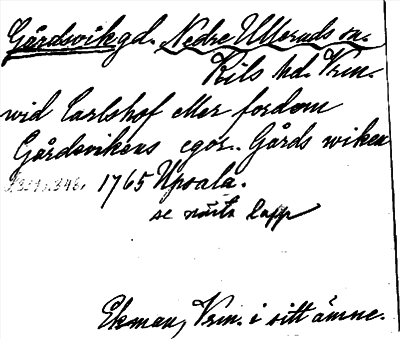 Gårdsvik gd. Nedre Ulleruds sn.
Kils hd. Vrm.
wid Carlshof eller fordom
Gårdsvikens egor. Gårds wiken
S. 346. 1765 Upsala.
se nästa lapp
Ekman, Vrm. i sitt ämne.